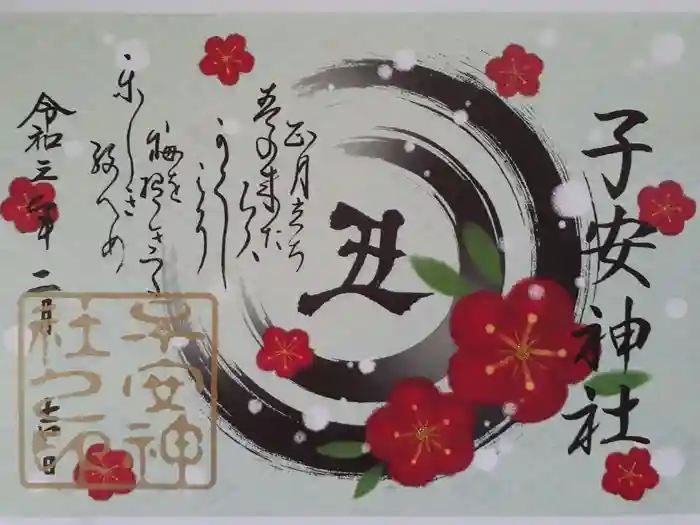 子安神社
丑
正月立ち
春の来たらば
かくしこそ
梅を招きつつ
楽しき
終へめ
令和三年
子安神
社之印